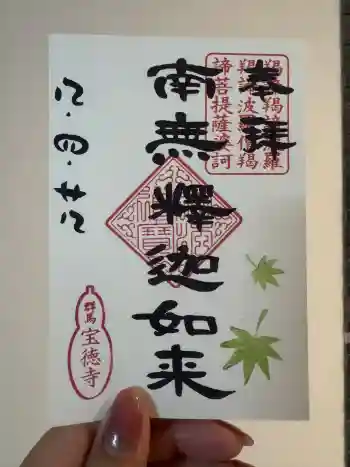 奉拝
羯諦羯諦波羅
羯諦波羅僧羯
諦菩提薩婆訶
南無釋迦如来
四・廿二
群馬
宝徳寺